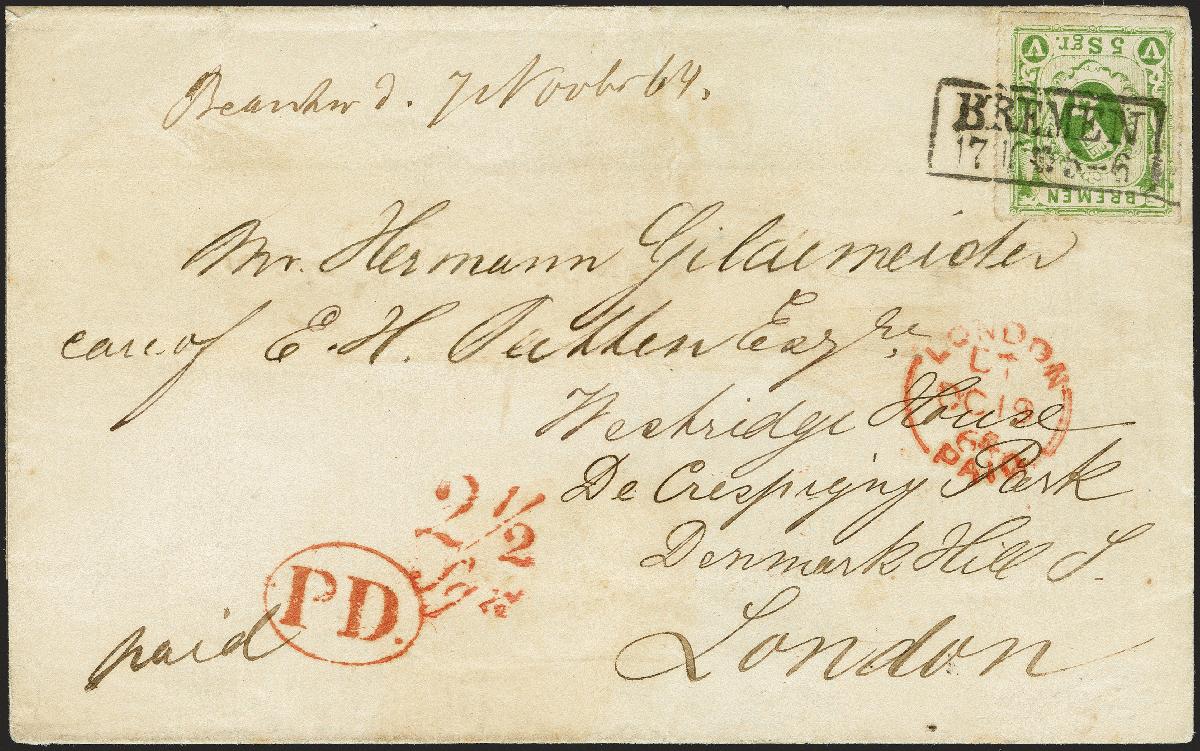 d. 7 Novbr 64.
V 5 Sgr. V
BREMEN
BREMEN
17
Mr. Hermann Gildemeister
care of E. H. Patten Esqre.
Westridge House
De Crespigny Park
Denmark Hill S.
London
LONDON
DC 19
PAID
2 1/2
P.D.
paid